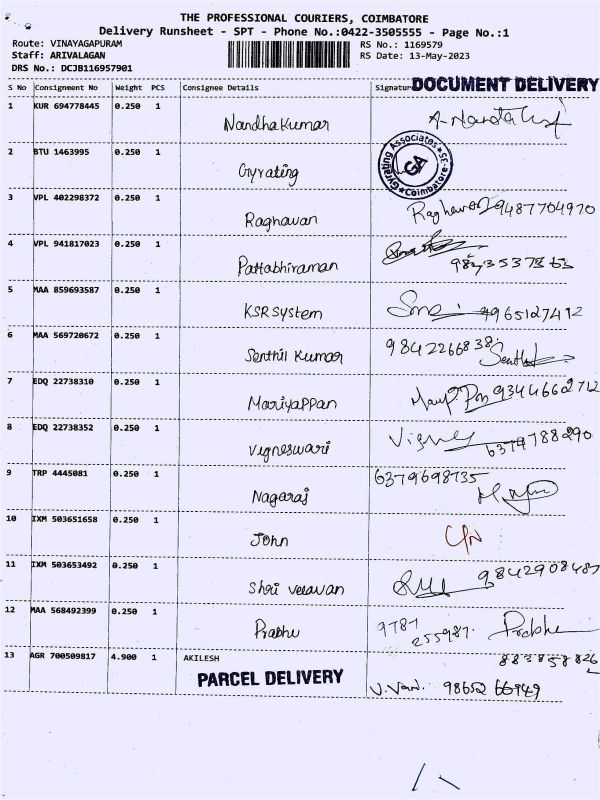 THE PROFESSIONAL COURIERS, COIMBATORE
Delivery Runsheet - SPT - Phone No.:0422-3505555 - Page No.:1
Route: VINAYAGAPURAM RS No.: 1169579
Staff: ARIVALAGAN RS Date: 13-May-2023
DRS No.: DCJB116957901
DOCUMENT DELIVERY
S No Consignment No Weight PCS Consignee Details Signature
1 KUR 694778445 0.250 1 Nandhakumar
2 BTU 1463995 0.250 1 Gyrating
Gyrating Associates GA Coimbatore-35
3 VPL 402298372 0.250 1 Raghavan Raghavan 9487704970
4 VPL 941817023 0.250 1 Pattabhiraman
5 MAA 859693587 0.250 1 KSR System 9965127412
6 MAA 569720672 0.250 1 Senthil Kumar 9842266838
7 EDQ 22738310 0.250 1 Mariyappan 9344662712
8 EDQ 22738352 0.250 1 Vigneswari
9 TRP 4445081 0.250 1 Nagaraj 6379698735
10 IXM 503651658 0.250 1 John
11 IXM 503653492 0.250 1 Shri velavan 9842908487
12 MAA 568492399 0.250 1 Prabhu 9787 255987. Prabhu
13 AGR 700509817 4.900 1 AKILESH
PARCEL DELIVERY